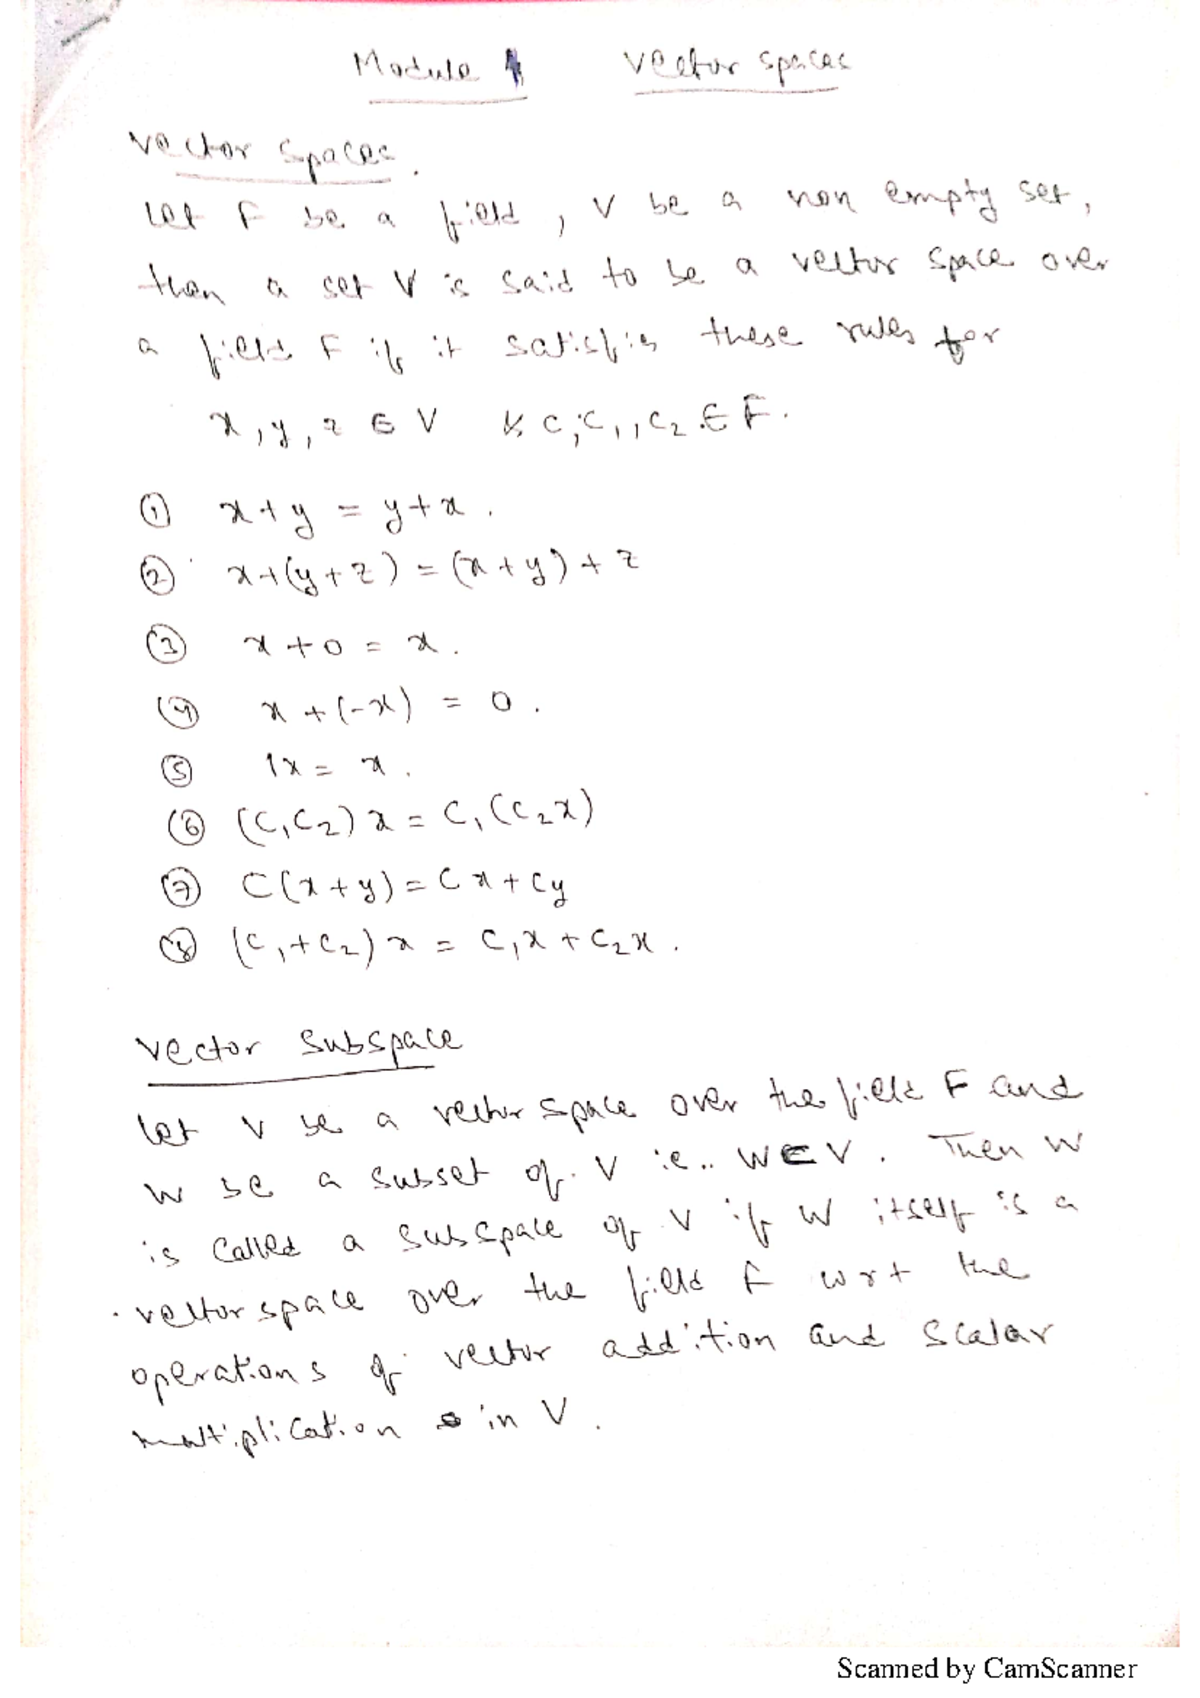 Module 1 Vector spaces
Vector spaces.
Let F be a field, V be a non empty set,
then a set V is said to be a vector space over
a field F if it satisfies these rules for
x, y, z ∈ V & C, C₁, C₂ ∈ F.
① x+y = y+x.
② x+(y+z) = (x+y)+z
③ x+0 = x.
④ x+(-x) = 0.
⑤ 1x = x.
⑥ (C₁C₂)x = C₁(C₂x)
⑦ C(x+y) = Cx+Cy
⑧ (C₁+C₂)x = C₁x+C₂x.
Vector Subspace
Let V be a vector space over the field F and
W be a subset of V ie.. W⊂V. Then W
is called a subspace of V if W itself is a
vector space over the field F wrt the
operations of vector addition and scalar
multiplication in V.
Scanned by CamScanner